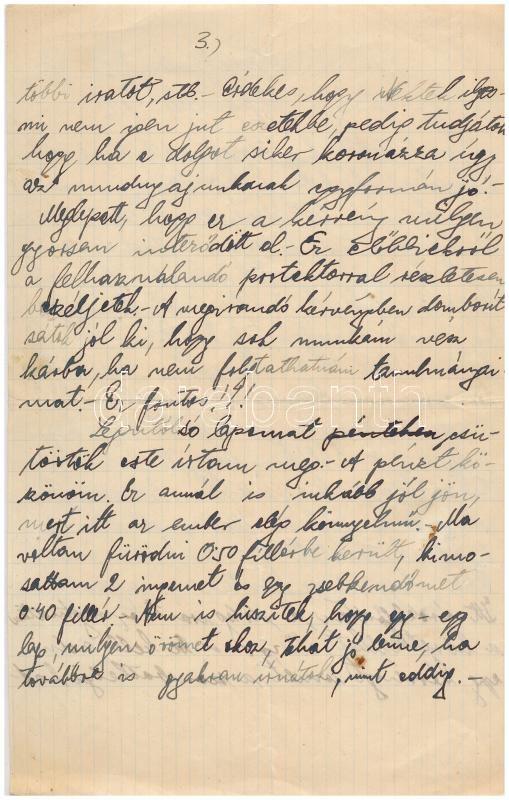 3.)
többi iratot, stb.- Érdekes, hogy Néktek ilyes-
mi nem igen jut eszetekbe, pedig tudjátok
hogy ha a dolgot siker koronázza úgy
az mindnyájunknak egyformán jó!-
Meglepett, hogy ez a kérvény milyen
gyorsan intéződött el.- Ez előbbiekről
a felhasználandó portektorral részletesen
beszéljetek.- A megirandó kérvényben domborít
sátok jól ki, hogy sok munkám vész
kárba, ha nem folytathatnám tanulmányai-
mat.! - Ez fontos!!!
darabanth
Legutóbbi lapomat pénteken csü-
törtök este írtam meg.- A pénzt kö-
szönöm. Ez annál is inkább jól jön,
mert itt az ember elég könnyelmű. Ma
voltam fürödni 0.50 fillérbe került, kimo-
sattam 2 ingemet és egy zsebkendőmet
0.40 fillér - Nem is hiszitek, hogy egy-egy
lap milyen örömet okoz, tehát jó lenne, ha
továbbra is gyakran irnátok, mint eddig.-